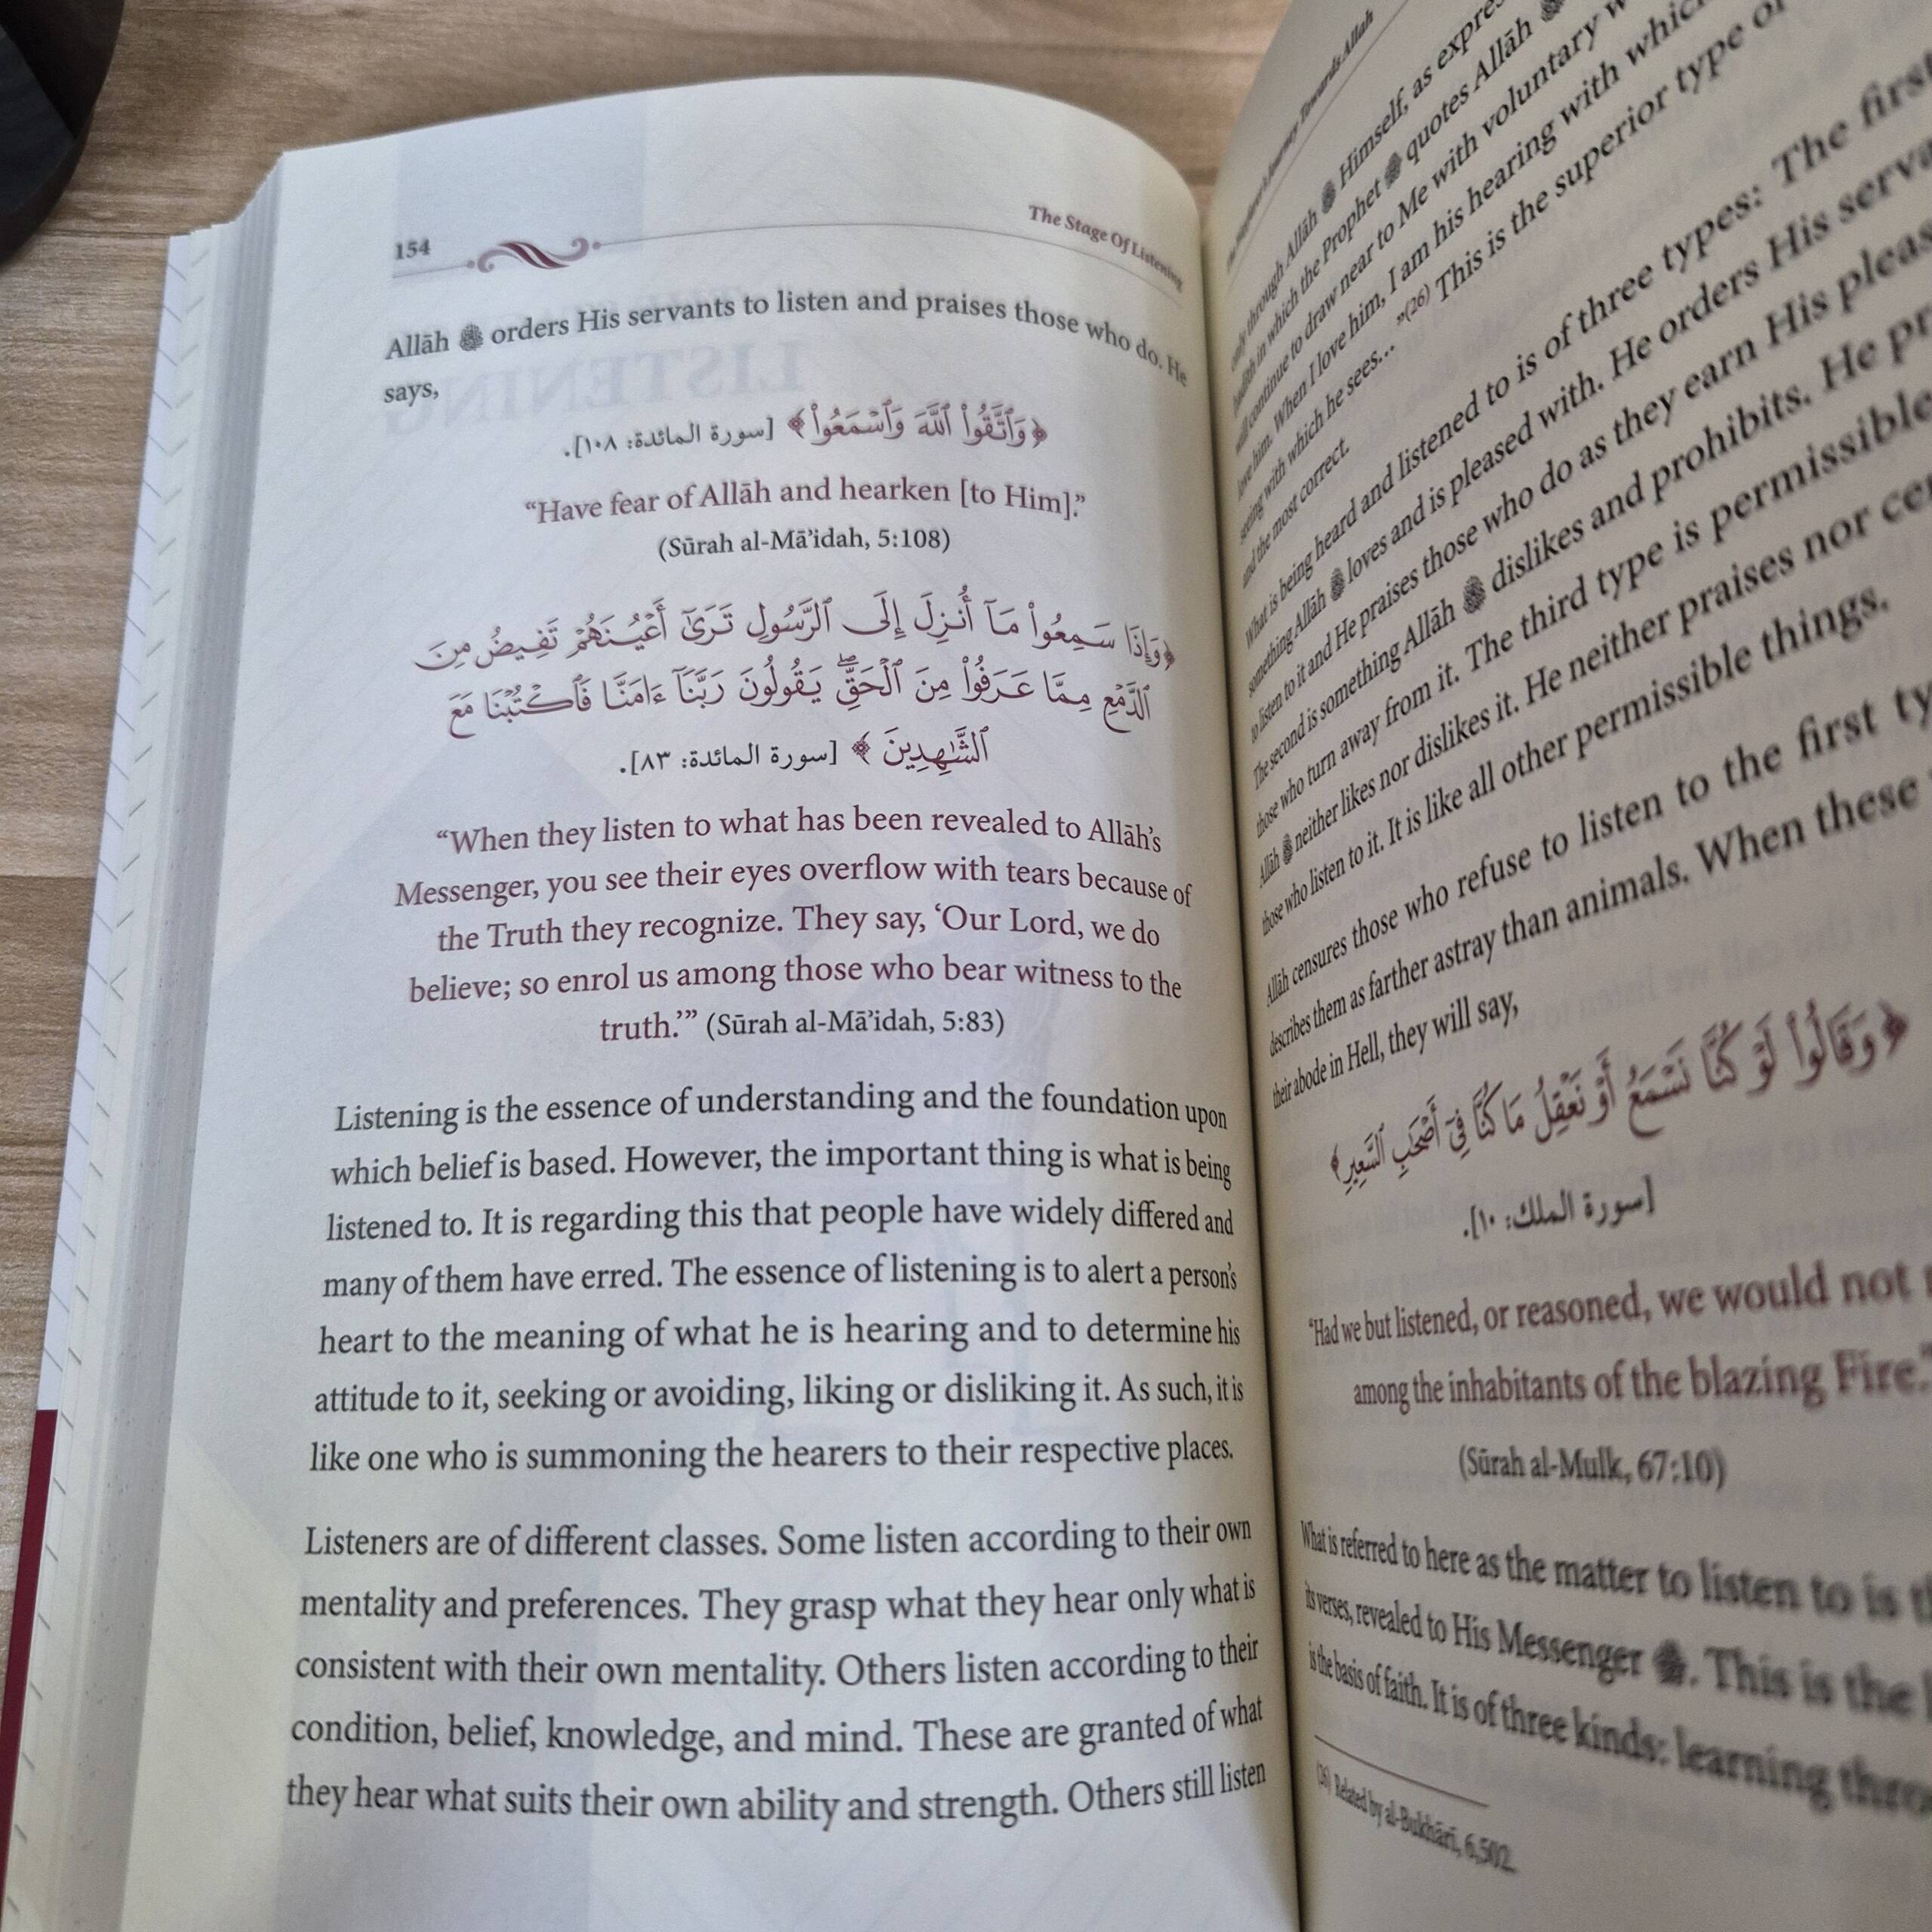 154
The Stage Of Listening
Allāh ﷻ orders His servants to listen and praises those who do. He
says,
﴿وَٱتَّقُوا۟ ٱللَّهَ وَٱسْمَعُوا۟﴾ [سورة المائدة: ١٠٨].
“Have fear of Allāh and hearken [to Him].”
(Sūrah al-Mā’idah, 5:108)
﴿وَإِذَا سَمِعُوا۟ مَآ أُنزِلَ إِلَى ٱلرَّسُولِ تَرَىٰٓ أَعْيُنَهُمْ تَفِيضُ مِنَ
ٱلدَّمْعِ مِمَّا عَرَفُوا۟ مِنَ ٱلْحَقِّ ۖ يَقُولُونَ رَبَّنَآ ءَامَنَّا فَٱكْتُبْنَا مَعَ
ٱلشَّـٰهِدِينَ ﴾ [سورة المائدة: ٨٣].
“When they listen to what has been revealed to Allāh’s
Messenger, you see their eyes overflow with tears because of
the Truth they recognize. They say, ‘Our Lord, we do
believe; so enrol us among those who bear witness to the
truth.’” (Sūrah al-Mā’idah, 5:83)
Listening is the essence of understanding and the foundation upon
which belief is based. However, the important thing is what is being
listened to. It is regarding this that people have widely differed and
many of them have erred. The essence of listening is to alert a person’s
heart to the meaning of what he is hearing and to determine his
attitude to it, seeking or avoiding, liking or disliking it. As such, it is
like one who is summoning the hearers to their respective places.
Listeners are of different classes. Some listen according to their own
mentality and preferences. They grasp what they hear only what is
consistent with their own mentality. Others listen according to their
condition, belief, knowledge, and mind. These are granted of what
they hear what suits their own ability and strength. Others still listen
Journey Towards Allah
only through Allāh ﷻ Himself, as
hadith in which the Prophet ﷺ quotes Allāh
will continue to draw near to Me with voluntary
love him. When I love him, I am his hearing with
seeing with which he sees... ”(26) This is the superior type
and the most correct.
What is being heard and listened to is of three types: The first
something Allāh ﷻ loves and is pleased with. He orders His
to listen to it and He praises those who do as they earn His
The second is something Allāh ﷻ dislikes and prohibits. He
those who turn away from it. The third type is permissible
Allāh ﷻ neither likes nor dislikes it. He neither praises nor
those who listen to it. It is like all other permissible things.
Allāh censures those who refuse to listen to the first
describes them as farther astray than animals. When these
their abode in Hell, they will say,
﴿وَقَالُوا۟ لَوْ كُنَّا نَسْمَعُ أَوْ نَعْقِلُ مَا كُنَّا فِىٓ أَصْحَـٰبِ ٱلسَّعِيرِ﴾
[سورة الملك: ١٠].
“Had we but listened, or reasoned, we would not
among the inhabitants of the blazing Fire.”
(Sūrah al-Mulk, 67:10)
What is referred to here as the matter to listen to is
its verses, revealed to His Messenger ﷺ. This is the
is the basis of faith. It is of three kinds: learning
(26) Related by al-Bukhārī, 6,502.